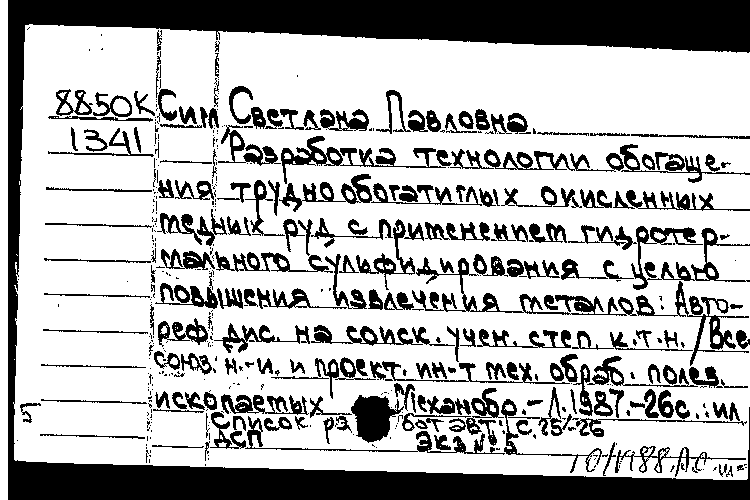 8850К Сим Светлана Павловна.
1341 Разработка технологии обогаще-
ния труднообогатимых окисленных
медных руд с применением гидротер-
мального сульфидирования с целью
повышения извлечения металлов: Авто-
реф. дис. на соиск. учен. степ. к.т.н. / Все-
союз. н.-и. и проект. ин-т мех. обраб. полез.
ископаемых Механобр. - Л. 1987. - 26с.: ил
Список ра бот авт.: с. 25-26
ДСП Экз № 5
5
10/1988,